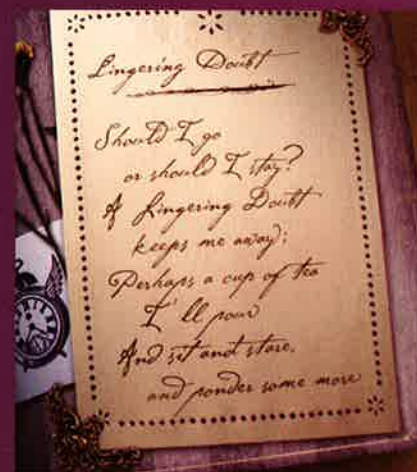 Lingering Doubt
Should I go
or should I stay?
A Lingering Doubt
keeps me away;
Perhaps a cup of tea
I'll pour
And sit and stare,
and ponder some more